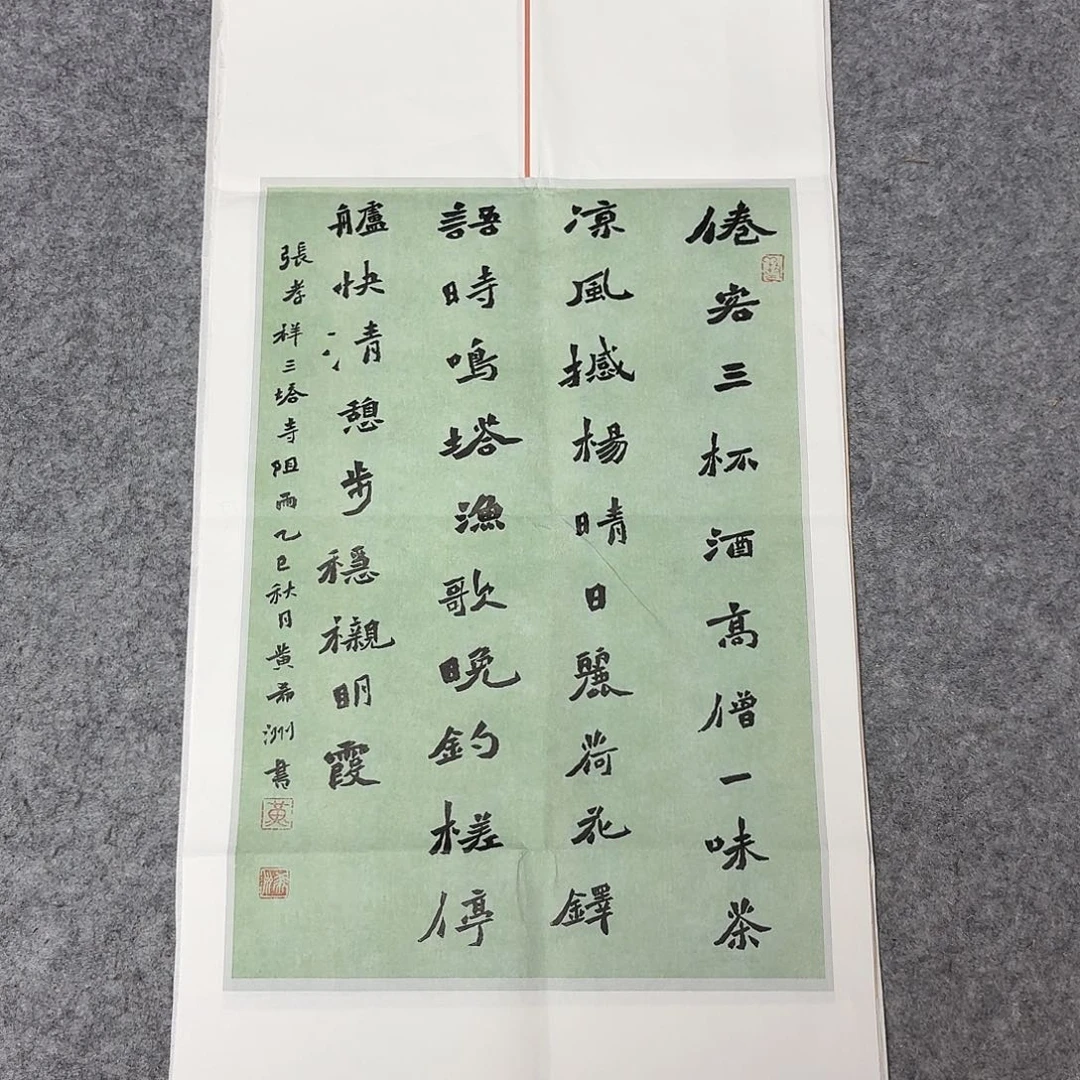 倦客三杯酒高僧一味茶
凉風撼楊晴日麗荷花鐸
語時鳴塔漁歌晚釣槎停
艫快清憩步穩襯明霞
張孝祥三塔寺阻雨乙巳秋月黄希洲書
黄